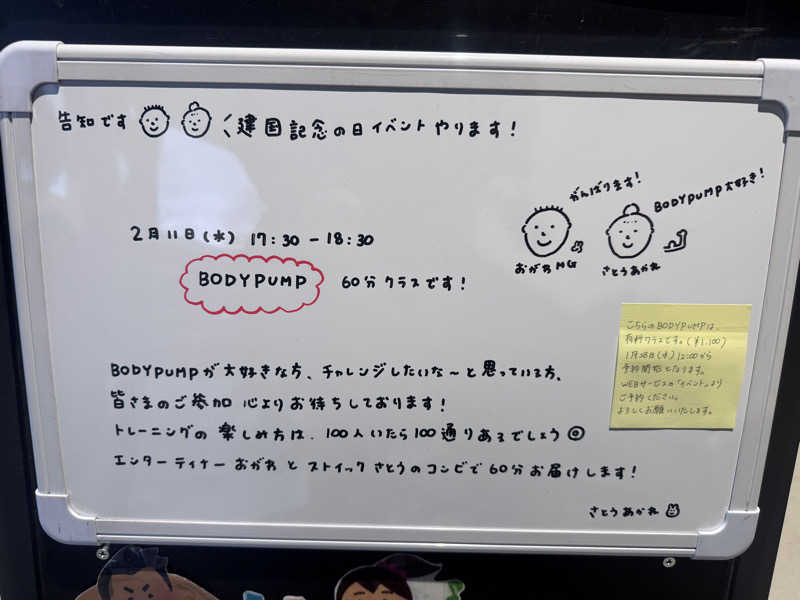 告知です 建国記念の日イベントやります!
がんばります!
BODYPUMP大好き!
おがわMG
さとうあかね
2月11日(水) 17:30-18:30
BODYPUMP 60分クラスです!
こちらのBODYPUMPは、
有料クラスです。(¥1,100)
1月28日(水)12:00から
予約開始となります。
WEBサービスの「イベント」より
ご予約ください。
よろしくお願いいたします。
BODYPUMPが大好きな方、チャレンジしたいな〜と思っている方、
皆さまのご参加 心よりお待ちしております!
トレーニングの楽しめ方は、100人いたら100通りあるでしょう
エンターテイナーおがわ と ストイックさとうのコンビで60分お届けします!
さとうあかね